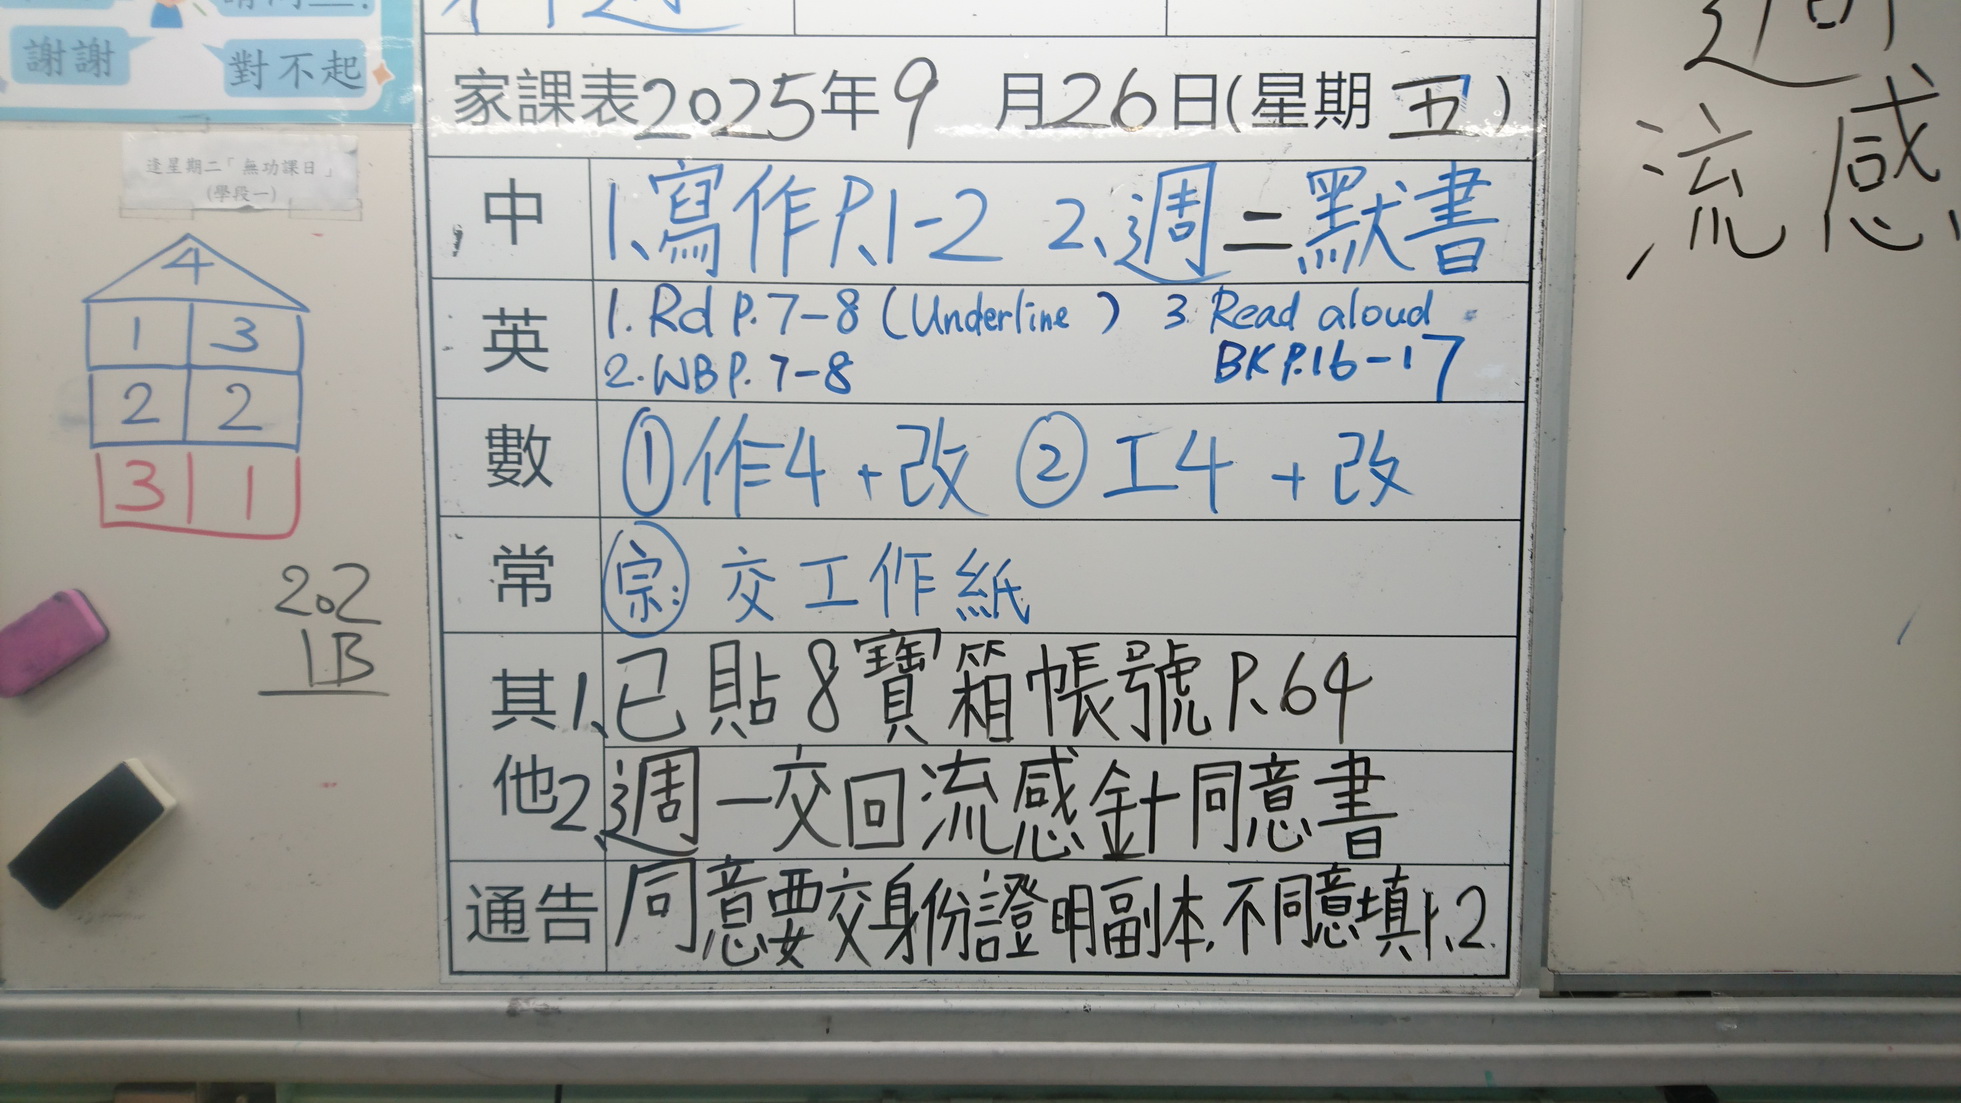 謝謝
對不起
逢星期二「無功課日」
(學段一)
4
1 3
2 2
3 1
202
1B
家課表2025年9月26日(星期五)
中 1、寫作P.1-2 2、週二默書
英 1. Rd P. 7-8 (Underline ) 3. Read aloud
2. WB P. 7-8 BK P.16-17
數 ①作4+改 ②工4+改
常 宗: 交工作紙
其 1、已貼8寶箱帳號P.64
他 2、週一交回流感針同意書
通告 同意要交身份證明副本,不同意填1、2.
流感